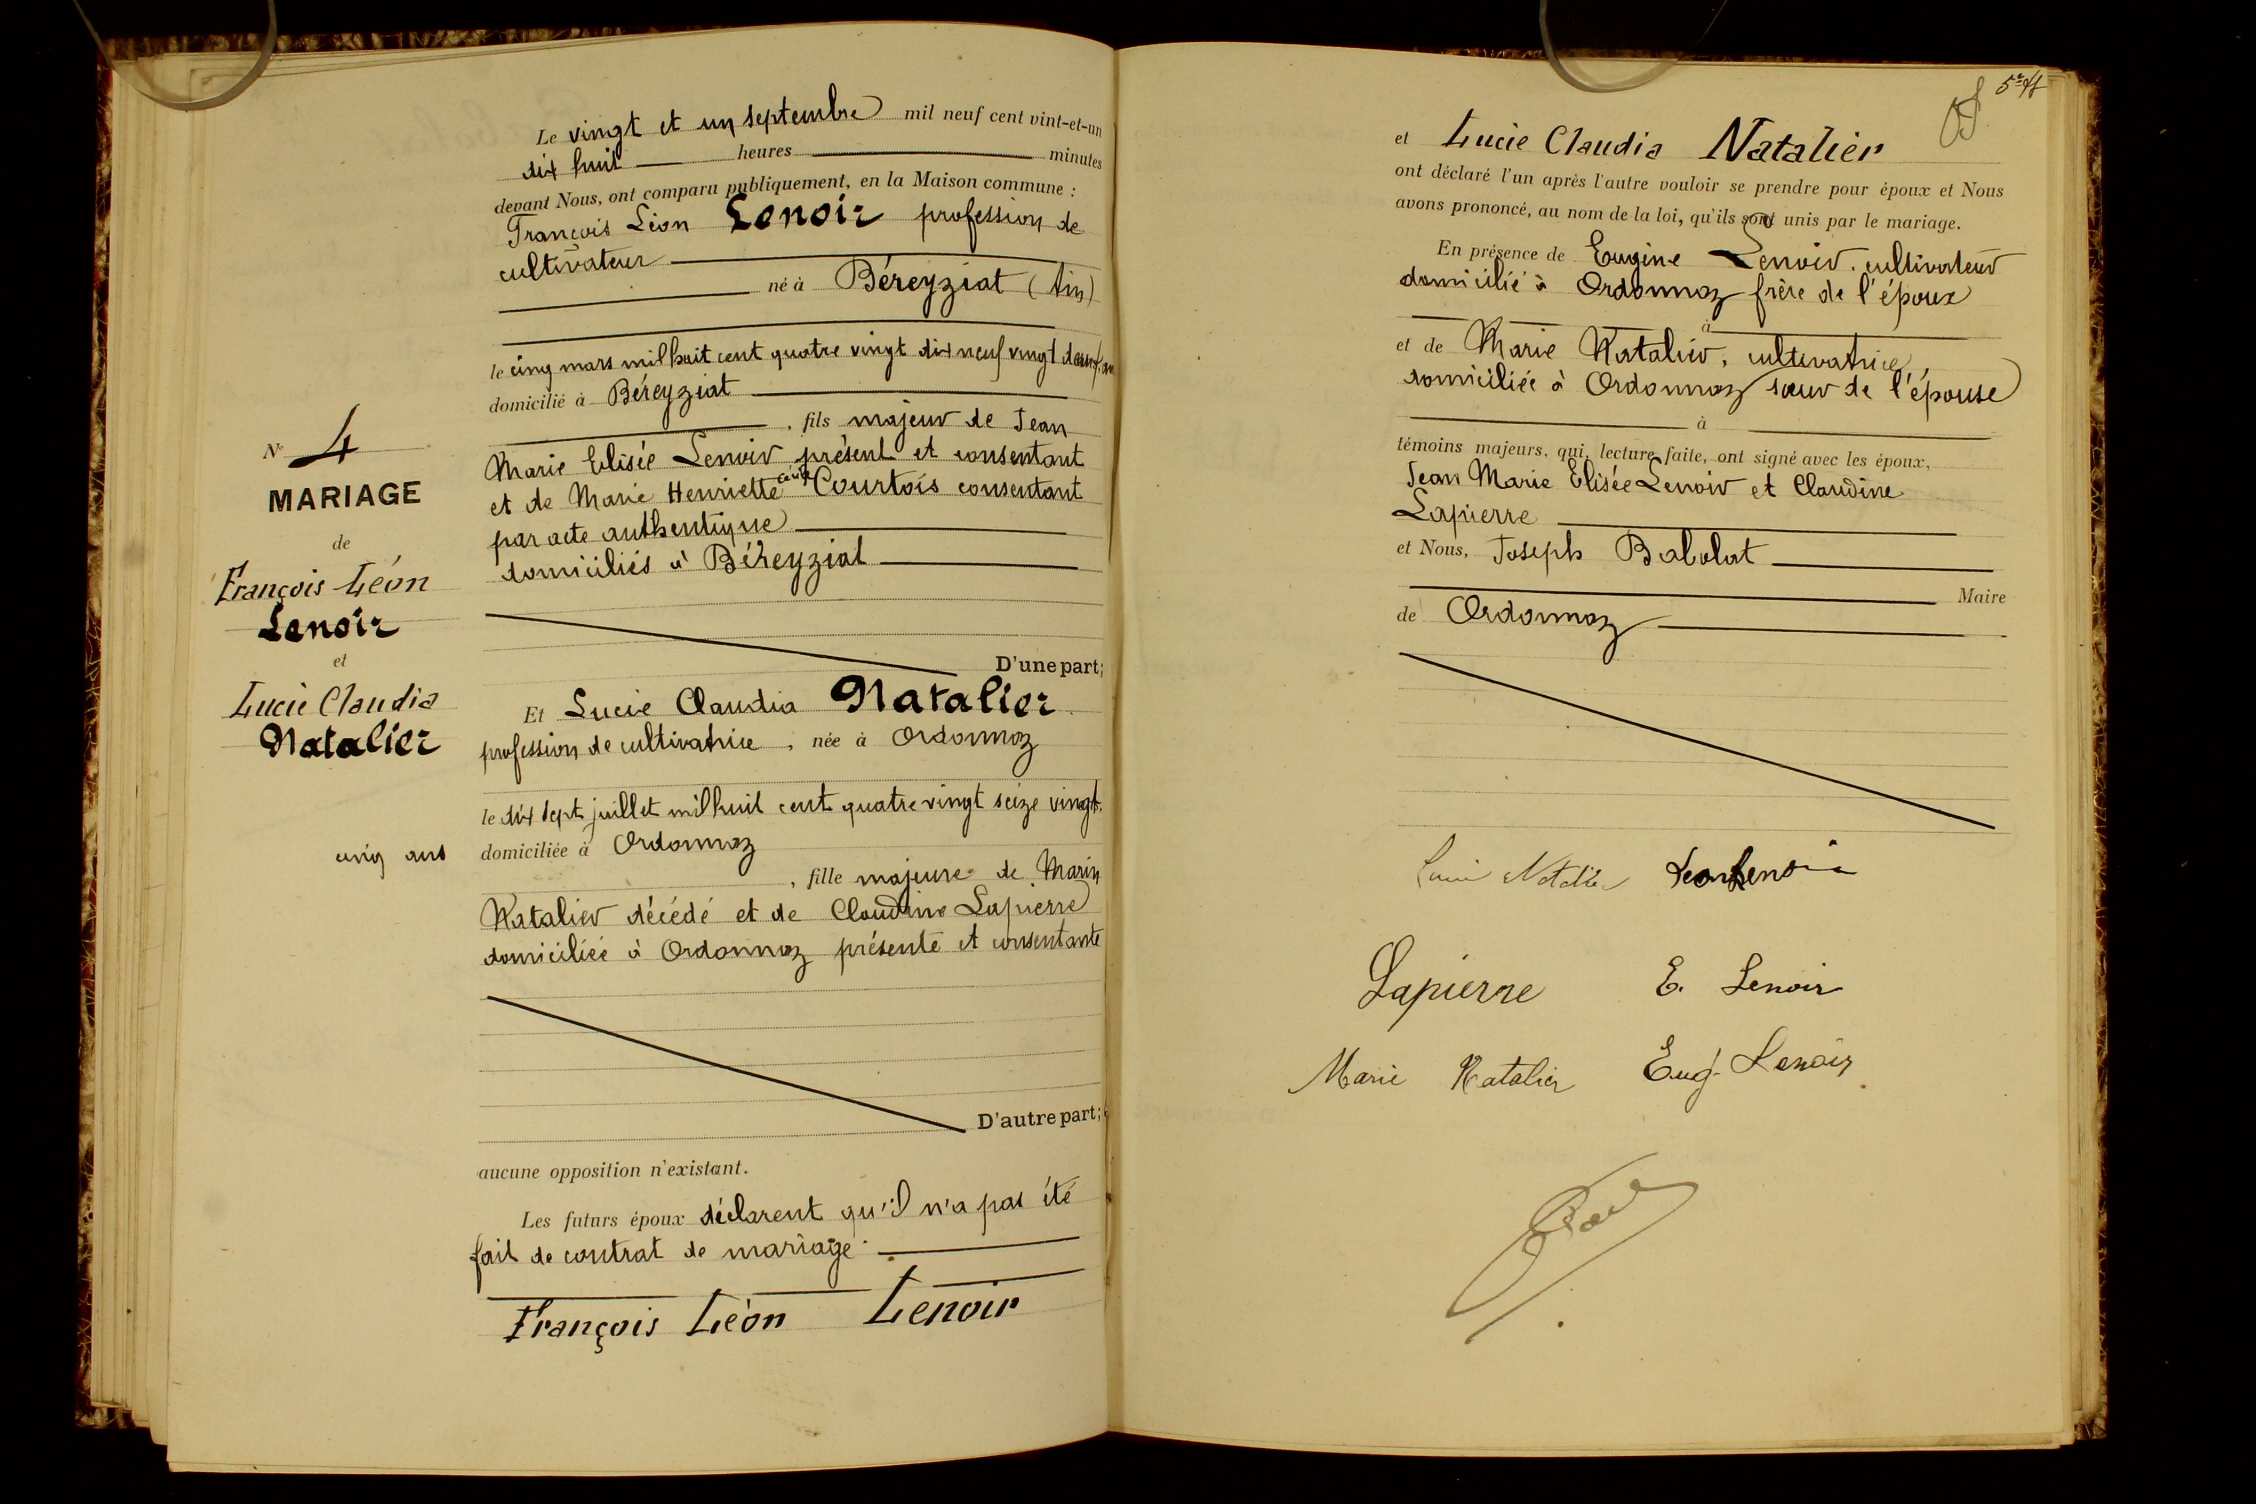 Le vingt et un septembre mil neuf cent vint-et-un
dix huit heures minutes
devant Nous, ont comparu publiquement, en la Maison commune :
François Léon Lenoir profession de
cultivateur
né à Béreyziat (Ain)
le cinq mars mil huit cent quatre vingt dix neuf vingt deux ans
domicilié à Béreyziat
, fils majeur de Jean
Marie Elisée Lenoir présent et consentant
et de Marie Henriette Cécile Courtois consentant
par acte authentique
domiciliés à Béreyziat
D'une part;
N° 4
MARIAGE
de
François Léon
Lenoir
et
Lucie Claudia
Natalier
Et Lucie Claudia Natalier
profession de cultivatrice, née à Ordonnaz
le dix sept juillet mil huit cent quatre vingt seize vingt
cinq ans
domiciliée à Ordonnaz
, fille majeure de Marin
Natalier décédé et de Claudine Lapierre
domiciliée à Ordonnaz présente et consentante
D'autre part;
aucune opposition n'existant.
Les futurs époux déclarent qu'il n'a pas été
fait de contrat de mariage.
François Léon Lenoir
et Lucie Claudia Natalier
ont déclaré l'un après l'autre vouloir se prendre pour époux et Nous
avons prononcé, au nom de la loi, qu'ils sont unis par le mariage.
En présence de Eugène Lenoir, cultivateur
domicilié à Ordonnaz frère de l'époux
à
et de Marie Natalier, cultivatrice,
domiciliée à Ordonnaz sœur de l'épouse
à
témoins majeurs, qui, lecture faite, ont signé avec les époux,
Jean Marie Elisée Lenoir et Claudine
Lapierre
et Nous, Joseph Babolat
Maire
de Ordonnaz
Lucie Natalier Léon Lenoir
Lapierre E. Lenoir
Marie Natalier Eug. Lenoir